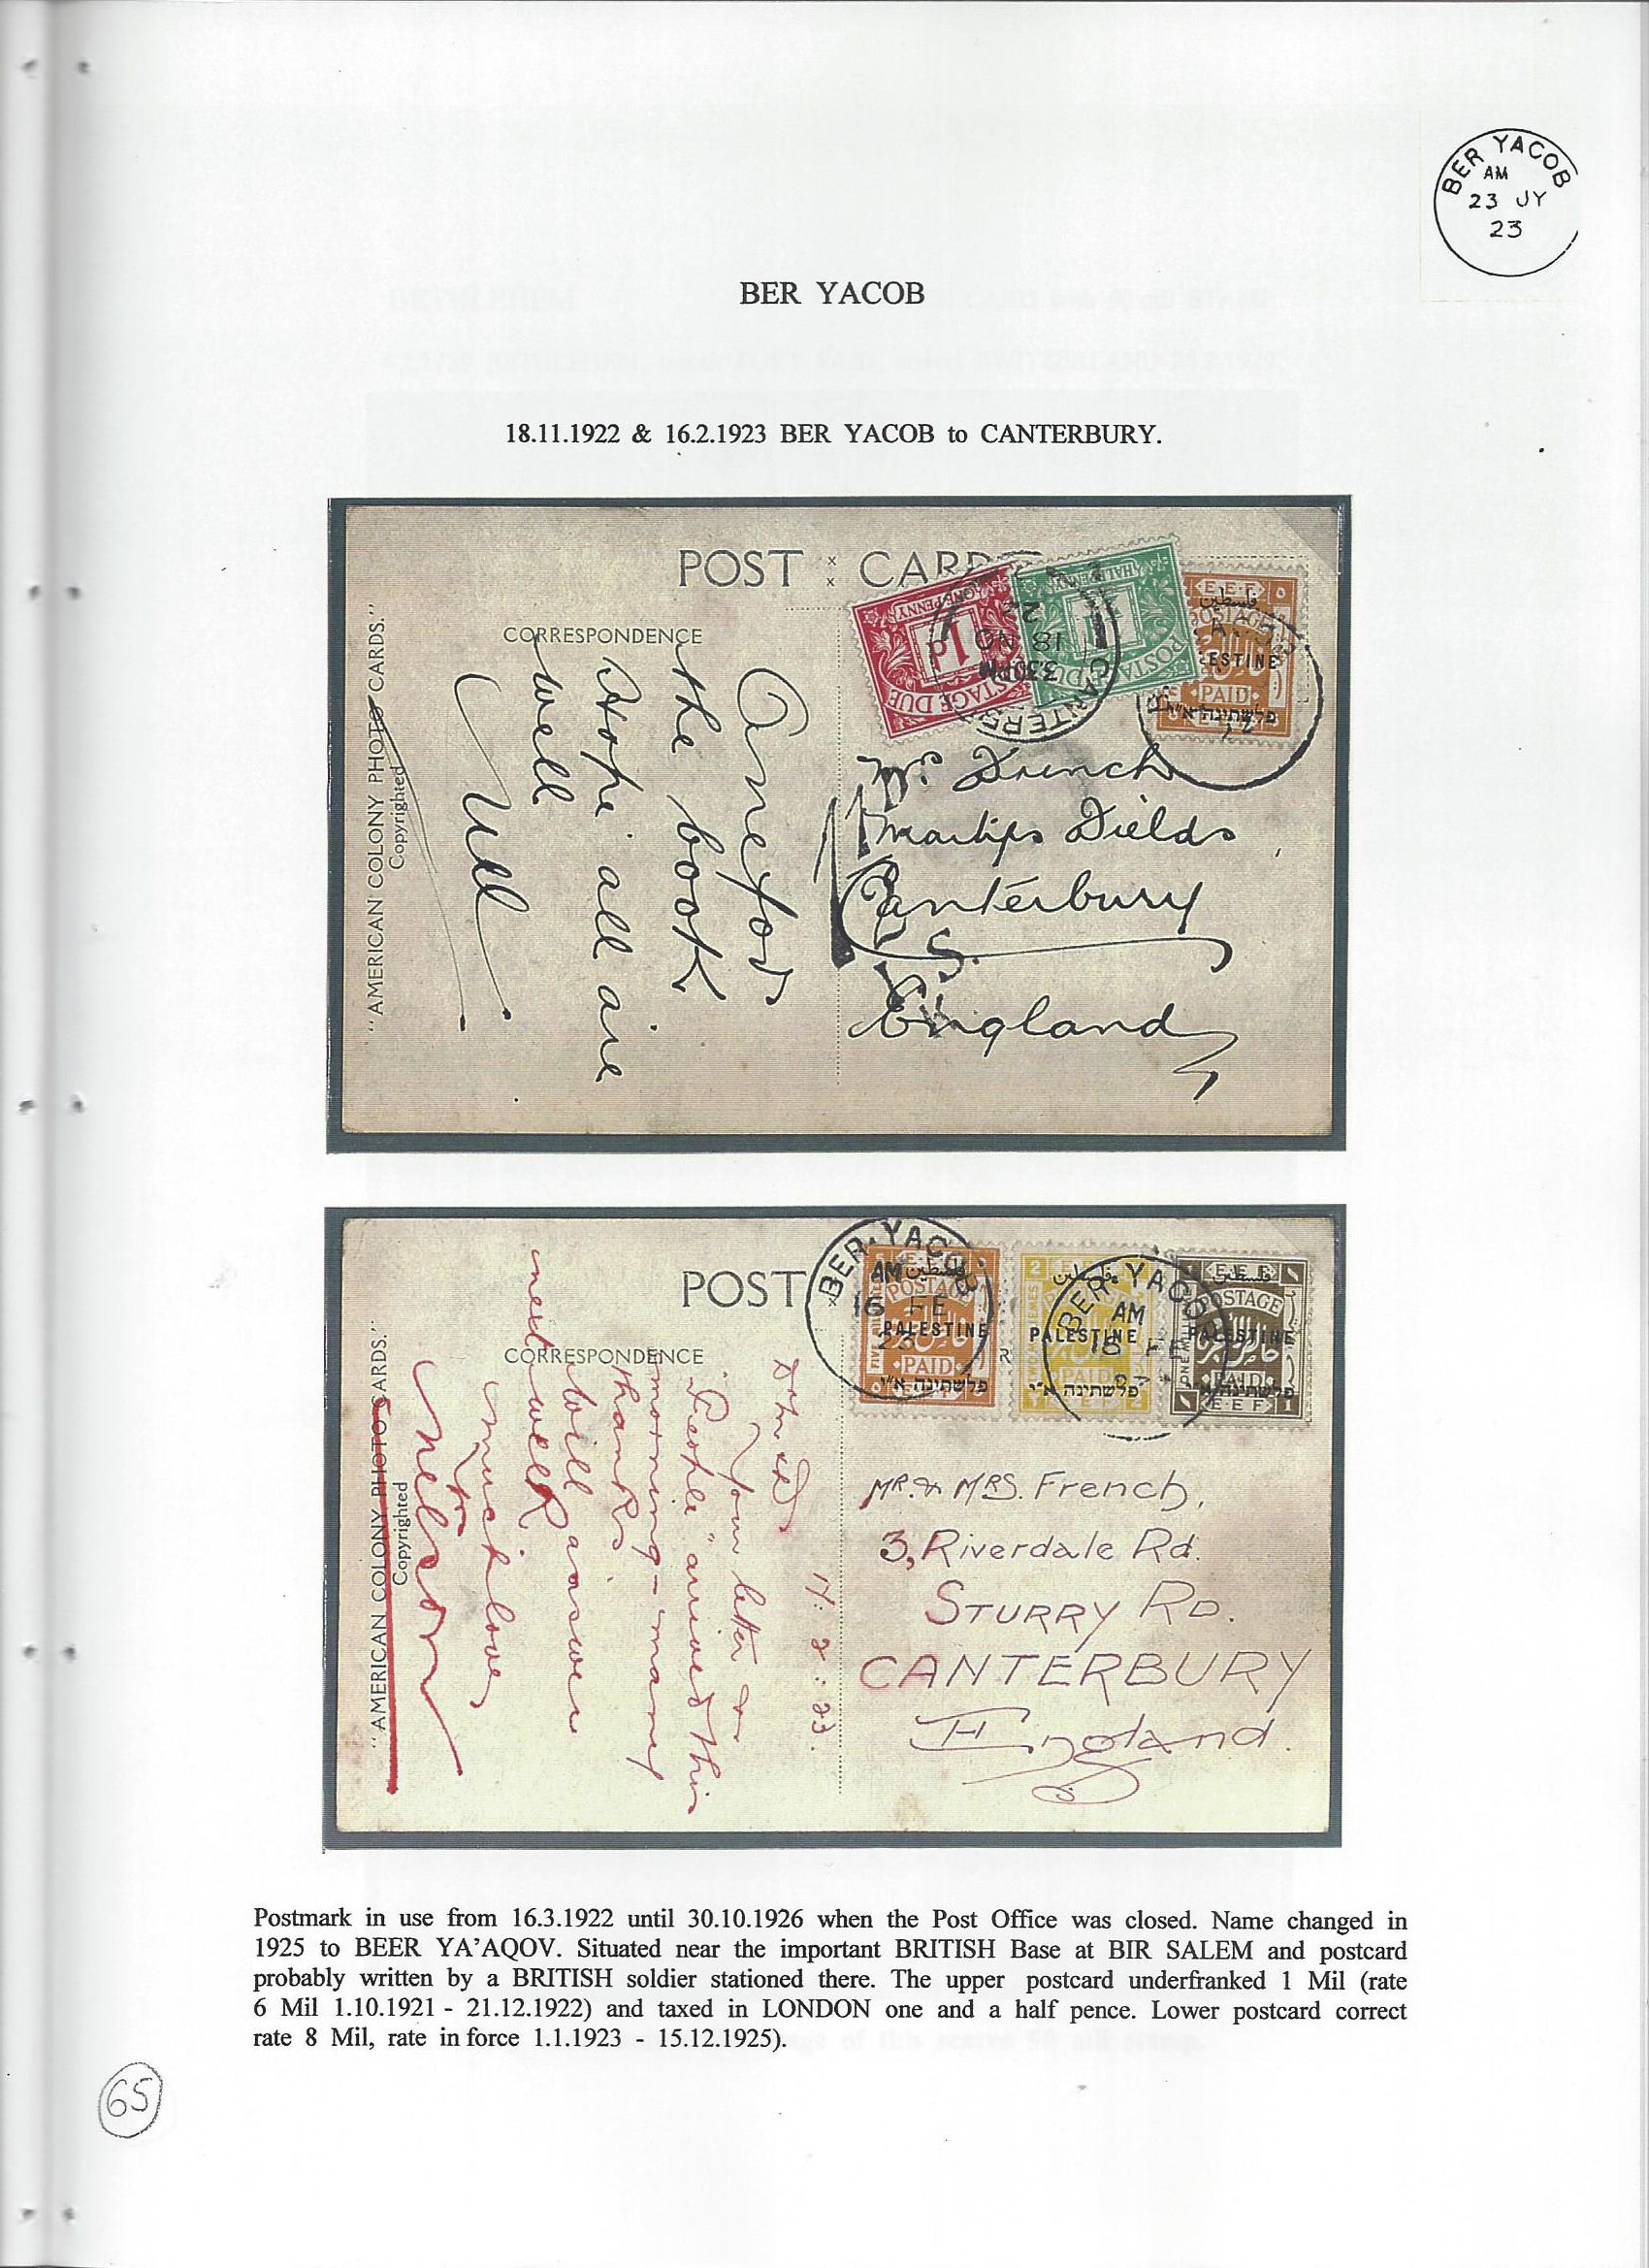 BER YACOB
AM
23 JY
23
BER YACOB
18.11.1922 & 16.2.1923 BER YACOB to CANTERBURY.
POST CARD
CORRESPONDENCE
"AMERICAN COLONY PHOTO CARDS."
Copyrighted
the book
Hope all are
well
ONE PENNY
1d
POSTAGE DUE
HALFPENNY
POSTAGE DUE
CANTERBURY
3 30 PM
18 NO
22
E.E.F.
فلسطين
POSTAGE
PALESTINE
PAID
פלשתינה א"י
French
Martyrs Fields
Canterbury
England
POST
CORRESPONDENCE
"AMERICAN COLONY PHOTO CARDS."
Copyrighted
14.2.23.
Your letter &
"People" arrived this
morning - many
thanks
will answer
next week
much love
Nelson
BER YACOB
AM
16 FE
23
E.E.F.
فلسطين
POSTAGE
PALESTINE
PAID
פלשתינה א"י
E.E.F.
BER YACOB
AM
16 FE
فلسطين
PALESTINE
פלשתינה א"י
E.E.F. 2
E.E.F.
فلسطين
POSTAGE
PALESTINE
ONE MILLIEME
PAID
פלשתינה א"י
E.E.F. 1
MR. & MRS. French,
3, Riverdale Rd.
STURRY RD.
CANTERBURY
England.
Postmark in use from 16.3.1922 until 30.10.1926 when the Post Office was closed. Name changed in
1925 to BEER YA'AQOV. Situated near the important BRITISH Base at BIR SALEM and postcard
probably written by a BRITISH soldier stationed there. The upper postcard underfranked 1 Mil (rate
6 Mil 1.10.1921 - 21.12.1922) and taxed in LONDON one and a half pence. Lower postcard correct
rate 8 Mil, rate in force 1.1.1923 - 15.12.1925).
65